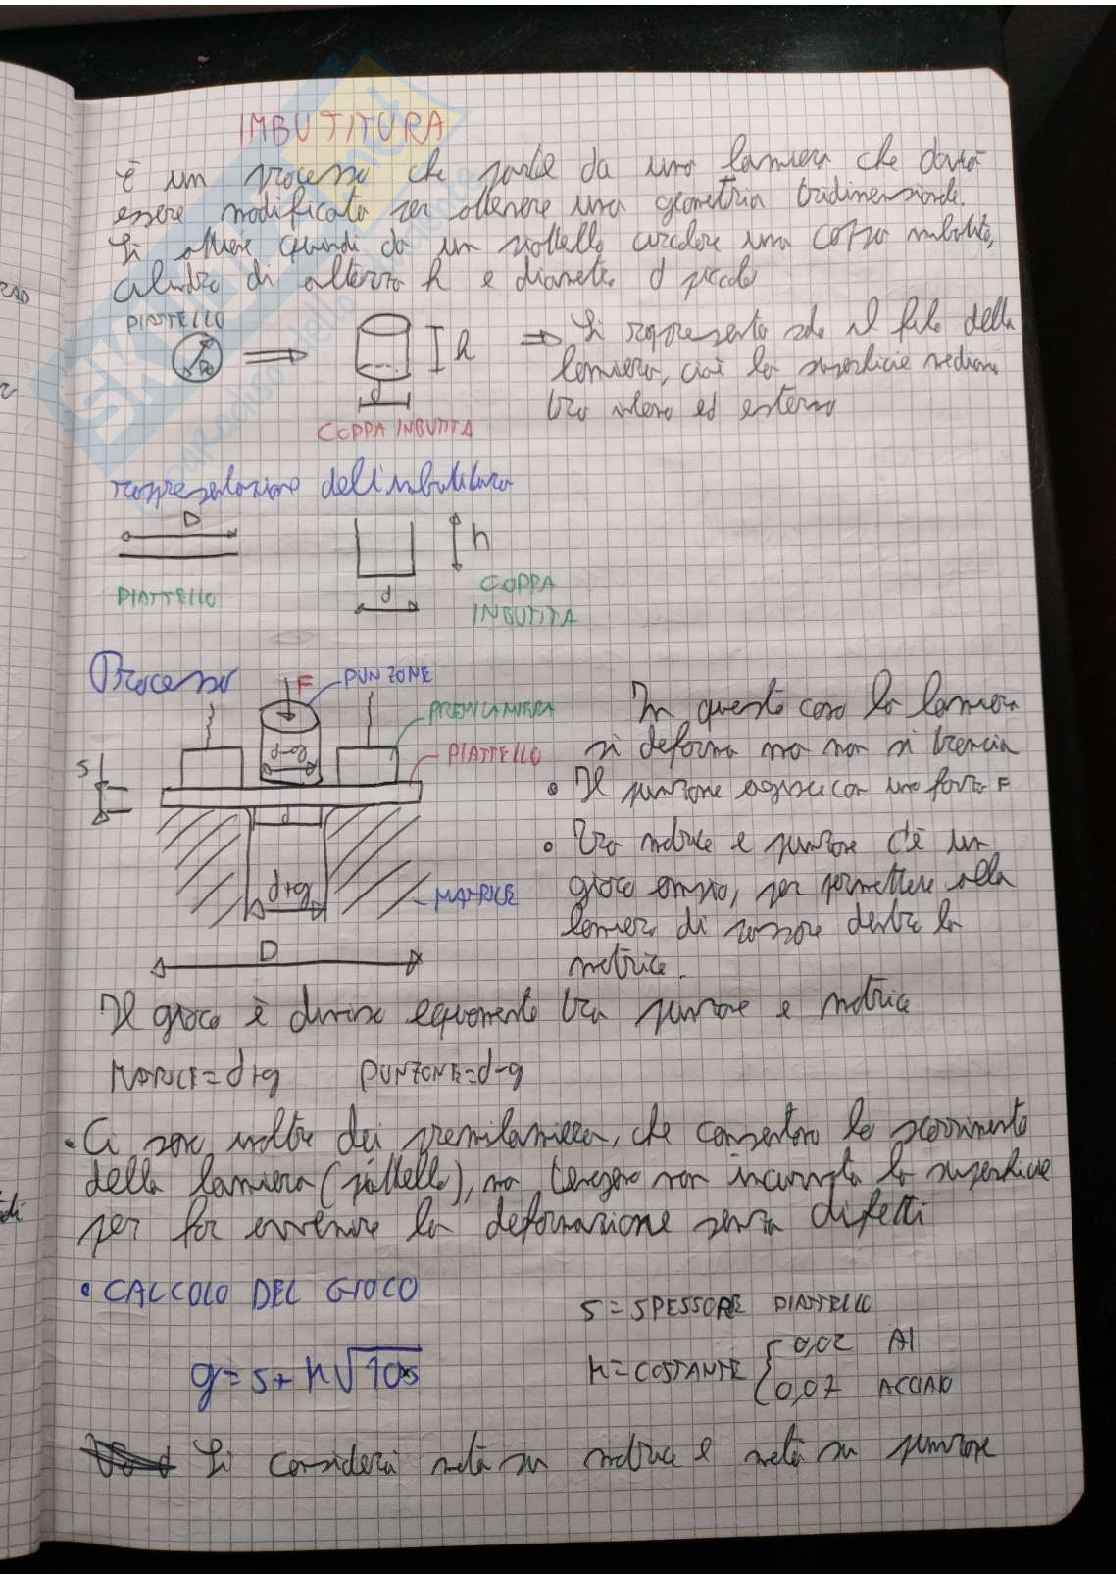 IMBUTITURA
È un processo che parte da una lamiera che dovrà
essere modificata per ottenere una geometria tridimensionale.
Si ottiene quindi da un piattello circolare una coppa imbutita,
cilindro di altezza h e diametro d piccolo
PIATTELLO
h
d
COPPA INBUTITA
⇒ Si rappresenta solo il filo della
lamiera, cioè la superficie mediana
tra interno ed esterno
rappresentazione dell'imbutitura
D
PIATTELLO
h
d
COPPA
INBUTITA
Processo
F
PUNZONE
PREMILAMIERA
PIATTELLO
S
d
d+g
MATRICE
D
In questo caso la lamiera
si deforma ma non si trancia
• Il punzone agisce con una forza F
• Tra matrice e punzone c'è un
gioco ampio, per permettere alla
lamiera di passare dentro la
matrice.
Il gioco è diviso equamente tra punzone e matrice
MATRICE=d+g PUNZONE=d-g
• Ci sono inoltre dei premilamiera, che consentono lo scorrimento
della lamiera (piattello), ma tengono non incurvata la superficie
per far avvenire la deformazione senza difetti
• CALCOLO DEL GIOCO
S = SPESSORE PIATTELLO
g = s + k√10s
K = COSTANTE { 0,02 Al
0,07 ACCIAIO
Si considera metà su matrice e metà su punzone